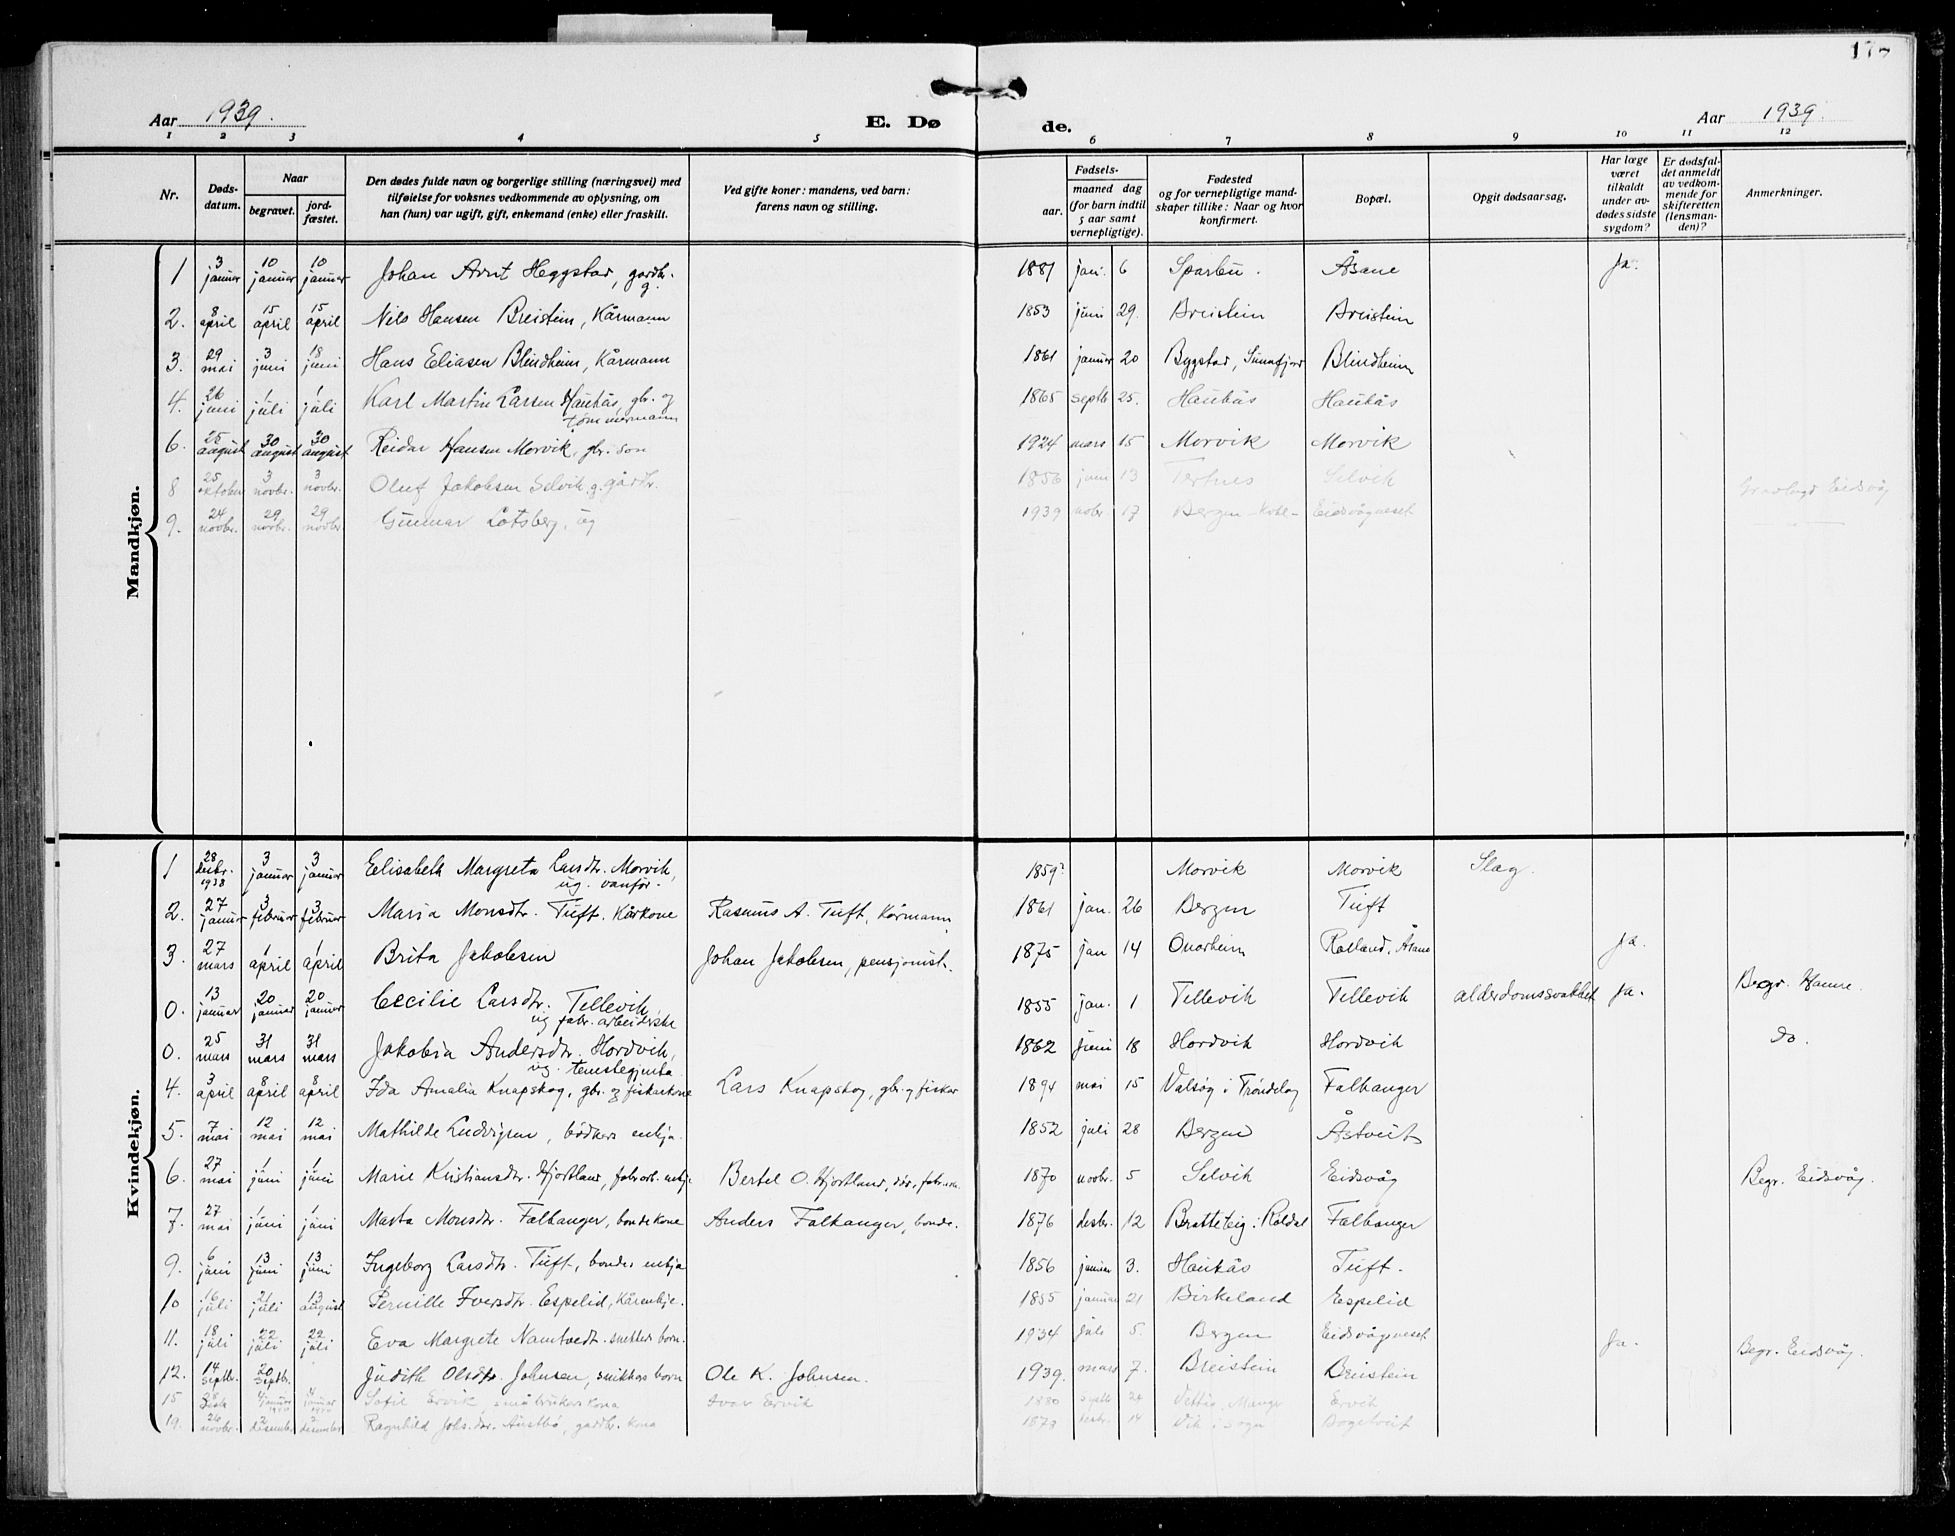 178
Aar 1939.
E. Dø
de.
Aar 1939.
1 2 3 4 5 6 7 8 9 10 11 12
Nr.
Døds-
datum.
Naar
begravet.
jord-
fæstet.
Den dødes fulde navn og borgerlige stilling (næringsvei) med
tilføielse for voksnes vedkommende av oplysning, om
han (hun) var ugift, gift, enkemand (enke) eller fraskilt.
Ved gifte koner: mandens, ved barn:
farens navn og stilling.
Fødsels-
aar.
maaned dag
(for barn indtil
5 aar samt
vernepligtige).
Fødested
og for vernepligtige mand-
skaper tillike: Naar og hvor
konfirmert.
Bopæl.
Opgit dødsaarsag.
Har læge
været
tilkaldt
under av-
dødes sidste
sygdom?
Er dødsfal-
det anmeldt
av vedkom-
mende for
skifteretten
(lensman-
den)?
Anmerkninger.
Mandkjøn.
1 3 januar 10 januar 10 januar Johan Arnt Heggstad, gardbr. g. 1881 jan. 6 Sparbu. Åsane Ja.
2. 8 april 15 april 15 april Nils Hansen Breistein, Kårmann 1853 juni 29. Breistein Breistein
3. 29 mai 3 juni 18 juni Hans Eliasen Blindheim, Kårmann 1861 januar 20 Bygstad, Sunnfjord Blindheim
4. 26 juni 1 juli 1 juli Karl Martin Larsen Haukås, gbr. og tømmermann 1865 septb 25. Haukås Haukås
6. 25 august 30 august 30 august Reidar Hansen Morvik, gbr. son 1924 mars 15 Morvik Morvik
8 25 oktober 3 novbr. 3 novbr. Oluf Jakobsen Selvik, g. gårdbr. 1856 juni 13 Tertnes Selvik Gravlagt Eidsvåg
9. 24 novbr. 29 novbr. 29 novbr. Gunnar Lotsberg, ug 1939 nobr. 17 Bergen Eidsvågneset
Kvindekjøn.
1 28 desbr. 1938 3 januar 3 januar Elisabeth Margreta Larsdtr. Morvik, ug. vanfør. 1859? Morvik Morvik Slag.
2. 27 januar 3 februar 3 februar Maria Monsdtr. Tuft. Kårkone Rasmus A. Tuft, Kårmann 1861 jan. 26 Bergen Tuft
3. 27 mars 1 april 1 april Brita Jakobsen Johan Jakobsen, pensjonist. 1875 jan 14 Onarheim Rolland, Åsane Ja.
0. 13 januar 20 januar 20 januar Cecilie Larsdtr. Tellevik, ug fabr. arbeiderske 1855 jan. 1 Tellevik Tellevik alderdomssvakhet Ja. Begr. Hamre.
0. 25 mars 31 mars 31 mars Jakobia Andersdtr. Hordvik, ug. tenestegjenta 1862 juni 18 Hordvik Hordvik do.
4. 3 april 8 april 8 april Ida Amalia Knapskog, gbr. og fiskarkone Lars Knapskog, gbr. og fiskar 1894 mai 15 Valsøy i Trøndelag Falkanger
5. 7 mai 12 mai 12 mai Mathilde Ludvigsen, bødkers enkja. 1852 juli 28 Bergen Åstveit
6. 27 mai 1 juni 1 juni Marie Kristiansdtr. Hjortland, fabr.arb. enkje Bertel O. Hjortland, 1870 novbr. 5 Selvik Eidsvåg Begr. Eidsvåg.
7. 27 mai 1 juni 1 juni Marta Monsdtr. Falkanger, bondekone Anders Falkanger, bonde. 1876 desbr. 12 Bratteteig i Røldal Falkanger
9. 6 juni 13 juni 13 juni Ingeborg Larsdtr. Tuft, bondes enkja 1856 januar 3. Haukås Tuft.
10 16 juli 21 juli 13 august Pernille Iversdtr. Espelid, Kårenkje. 1855 januar 21 Birkeland Espelid
11. 18 juli 22 juli 22 juli Eva Margrete Namtvedt. snekkers born. 1934 juli 5. Bergen Eidsvågneset Ja. Begr. Eidsvåg.
12. 14 septbr. 20 septbr. Judith Olsdtr. Johnsen, snikkers born Ole K. Johnsen. 1939. mars 7. Breistein Breistein
15 28 4 januar 1940 4 januar 1940 Sofie Ervik, småbrukers kona Ivar Ervik 1880 septb 24 Manger Ervik
19. 26 novbr. 2 desember 2 desember Ragnhild Johs.dtr. Austbø, gardbr. kona 1879 desbr. 14 Vik i Sogn